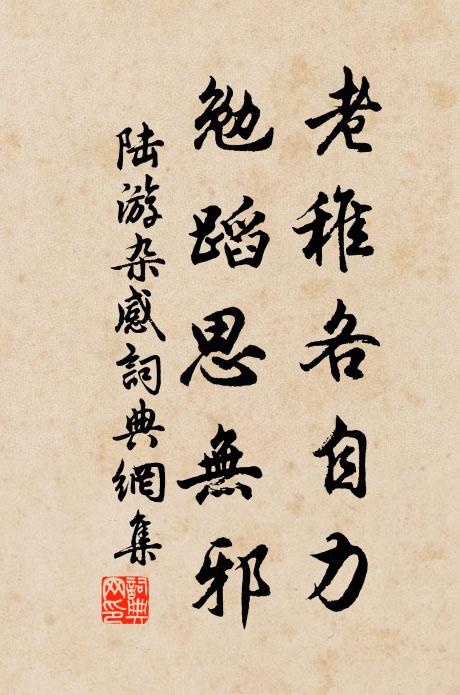 老稚各自力
勉蹈思無邪
陆游杂感詞典網集
詞典
网印